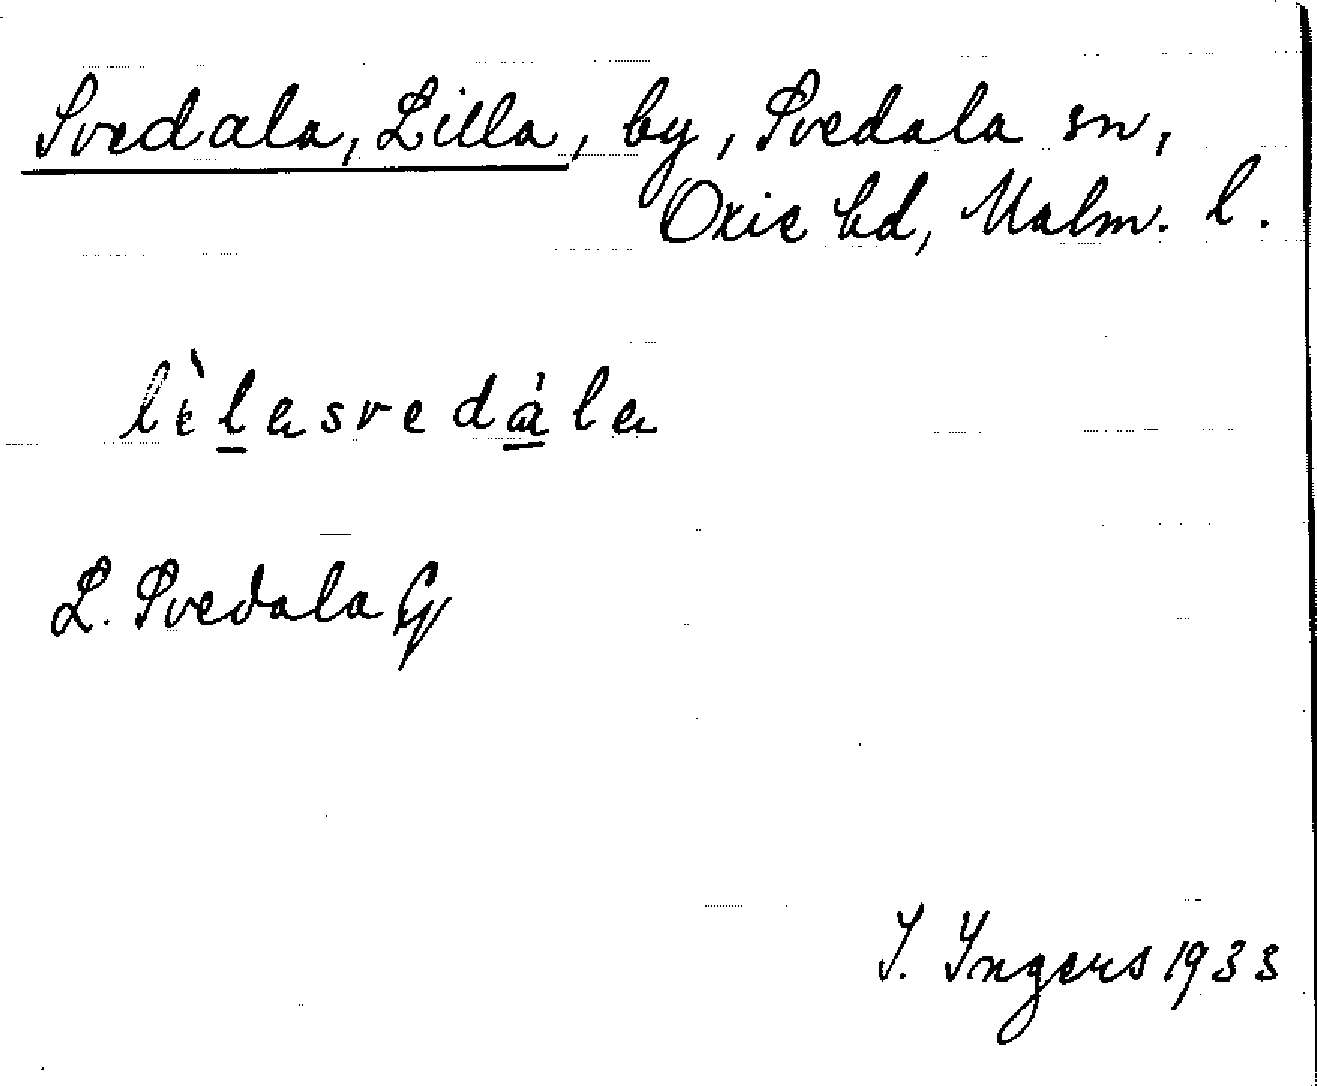 Svedala, Lilla, by, Svedala sn,
Oxie hd, Malm. l.
lìlasvedála
L. Svedala Gj
I. Ingers 1933